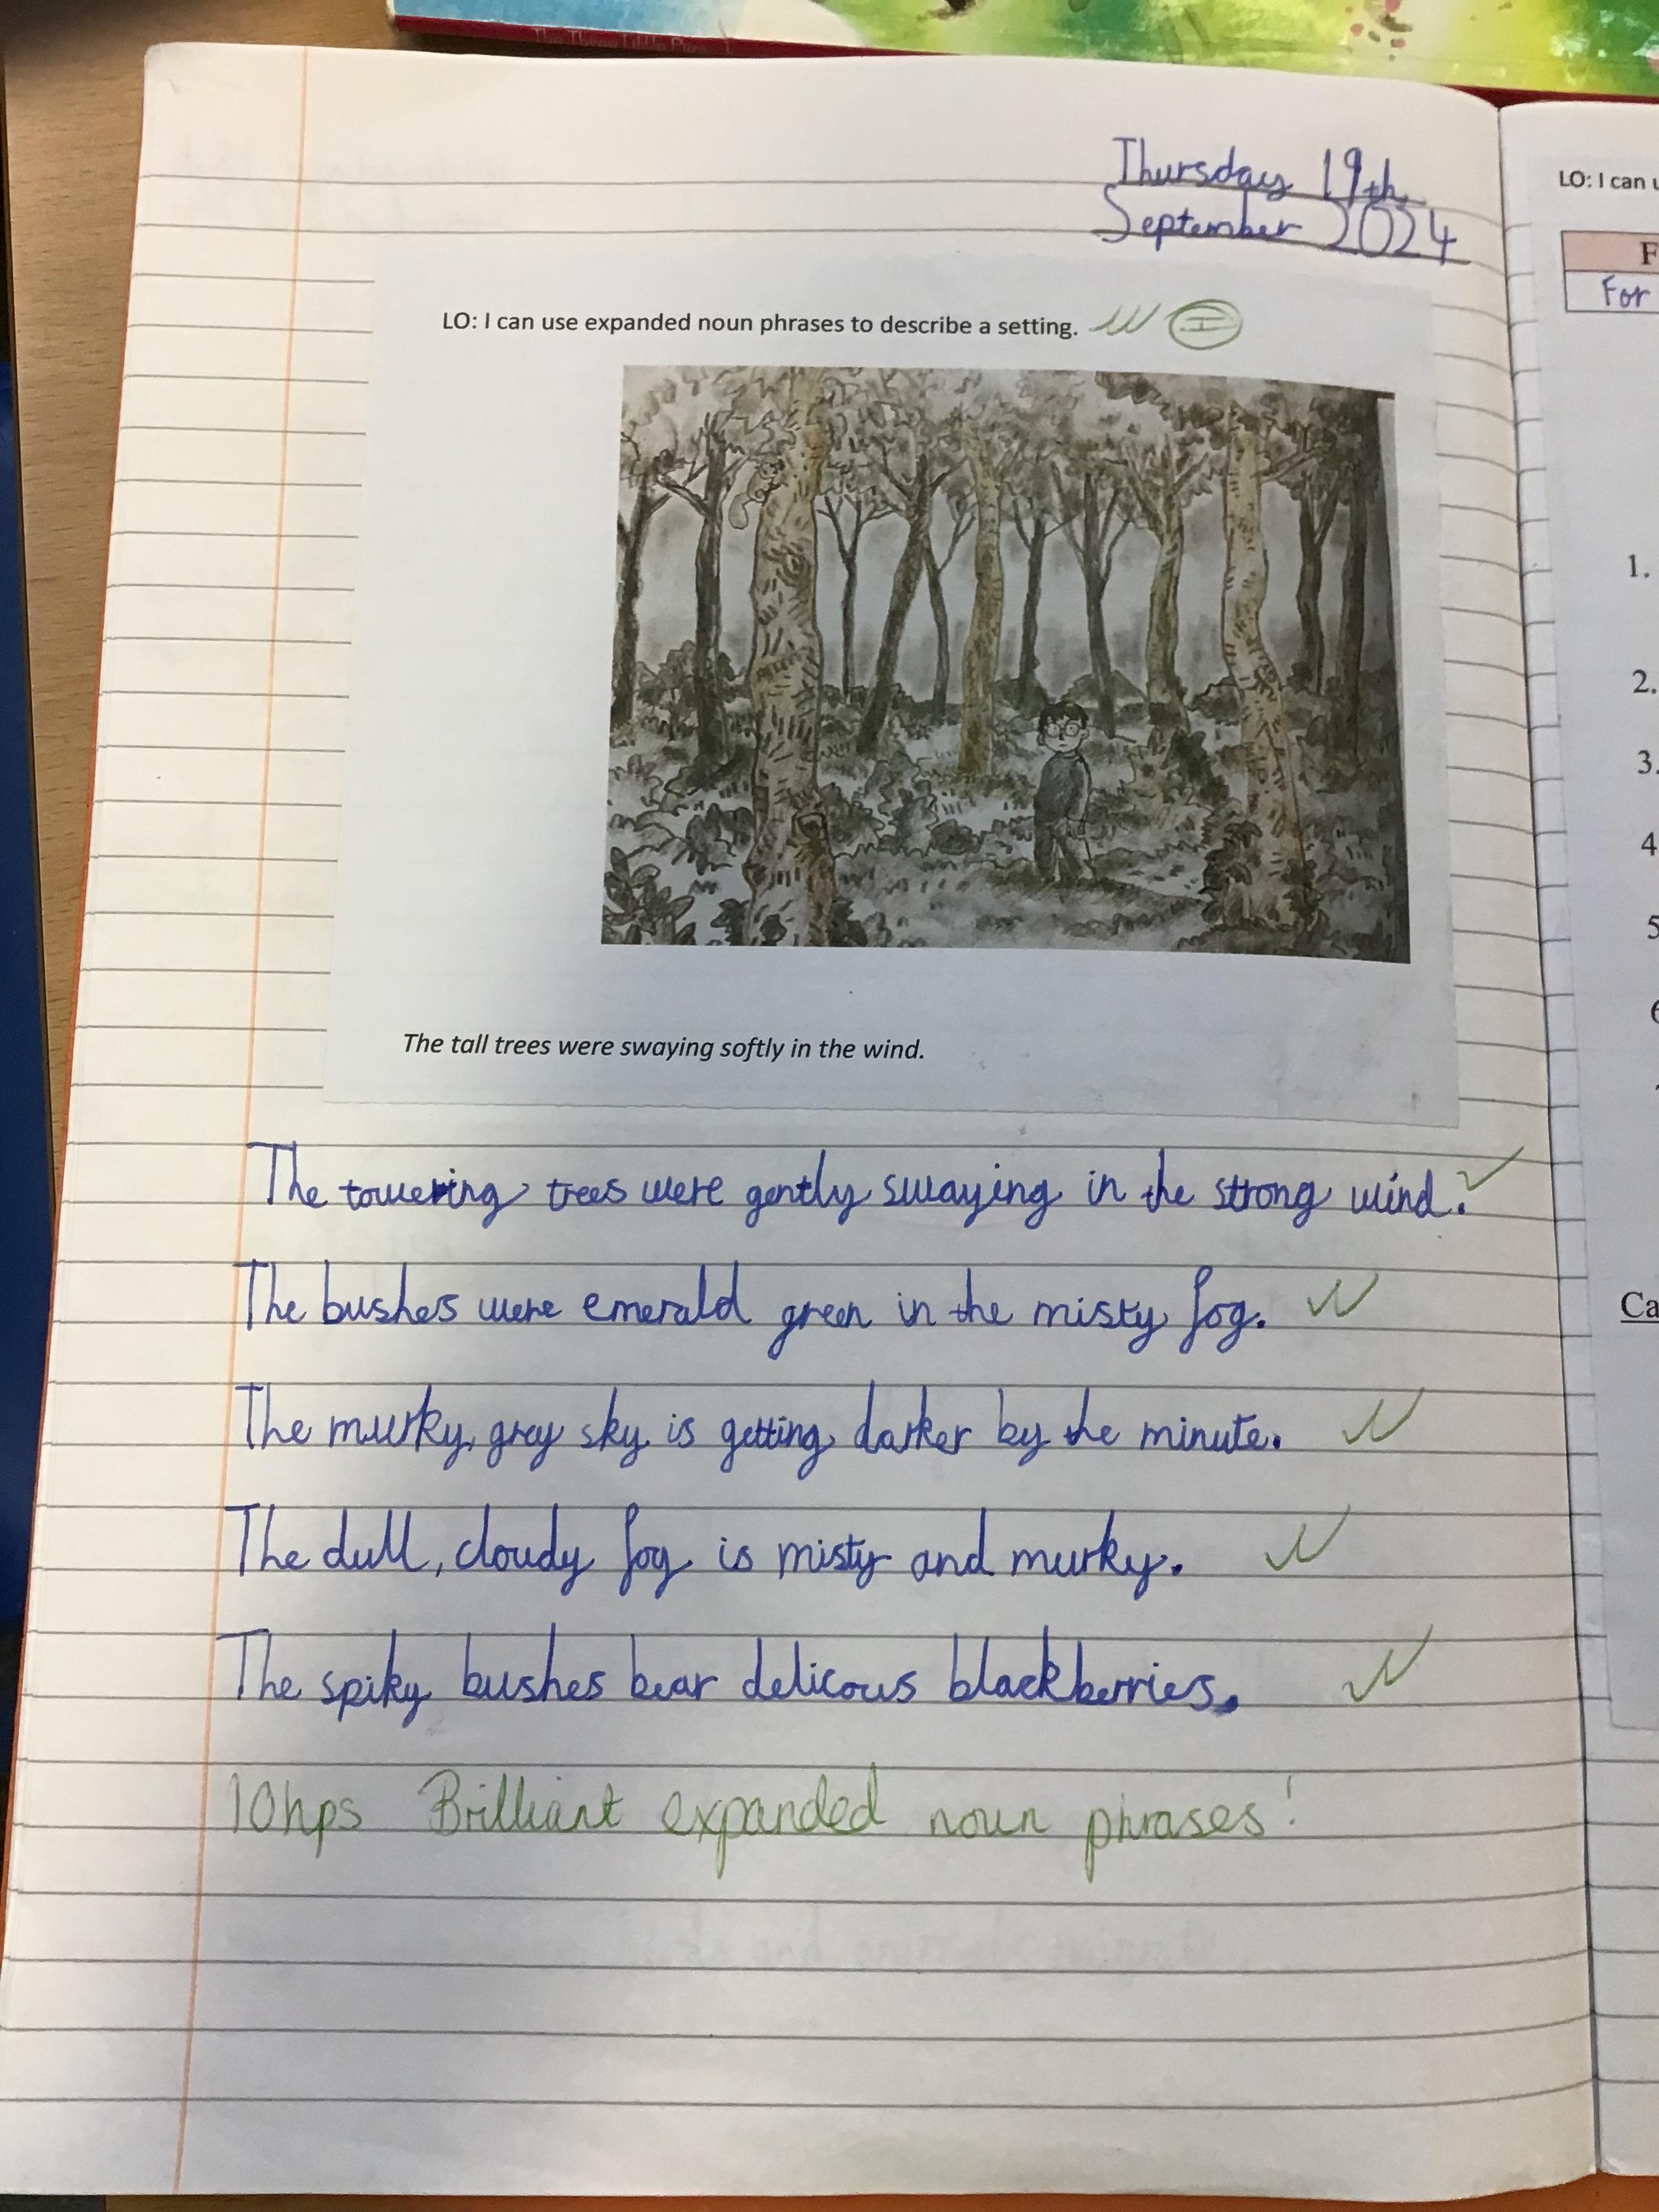 The Three Little Pigs
Thursday 19th
September 2024
LO: I can use expanded noun phrases to describe a setting.
I
The tall trees were swaying softly in the wind.
The towering trees were gently swaying in the strong wind.
The bushes were emerald green in the misty fog.
The murky, grey sky is getting darker by the minute.
The dull, cloudy fog is misty and murky.
The spiky bushes bear delicous blackberries.
10hps Brilliant expanded noun phrases!
LO: I can u
F
For
1.
2.
3.
4
5
6
Ca